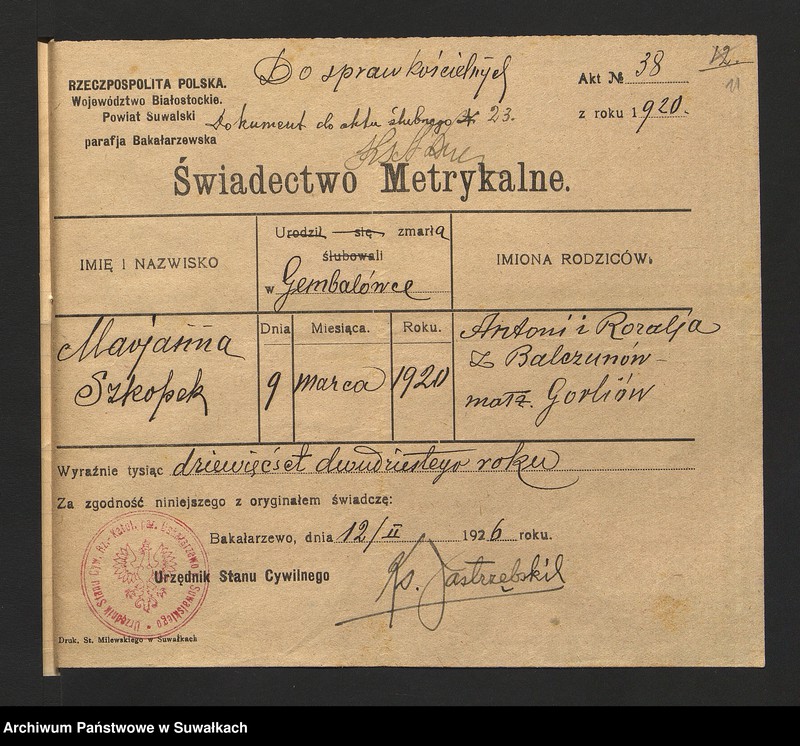 12.
11
Do spraw kościelnych
RZECZPOSPOLITA POLSKA.
Województwo Białostockie.
Powiat Suwalski
parafja Bakałarzewska
Akt № 38
z roku 1920.
Dokument do aktu ślubnego № 23.
Świadectwo Metrykalne.
IMIĘ I NAZWISKO
Urodził się zmarła
ślubowali
w Gembalówce
IMIONA RODZICÓW:
Marjanna
Szkopek
Dnia Miesiąca. Roku.
9 marca 1920
Antoni i Rozalja
z Balczunów
małż. Gorliów
Wyraźnie tysiąc dziewięćset dwudziestego roku
Za zgodność niniejszego z oryginałem świadczę:
Bakałarzewo, dnia 12/II 1926 roku.
Urzędnik Stanu Cywilnego
Ks. Jastrzębski
Urzędnik Stanu Cyw. Rz.-Katol. par. Bakałarzewo Suwalskiego
Druk. St. Milewskiego w Suwałkach
Archiwum Państwowe w Suwałkach